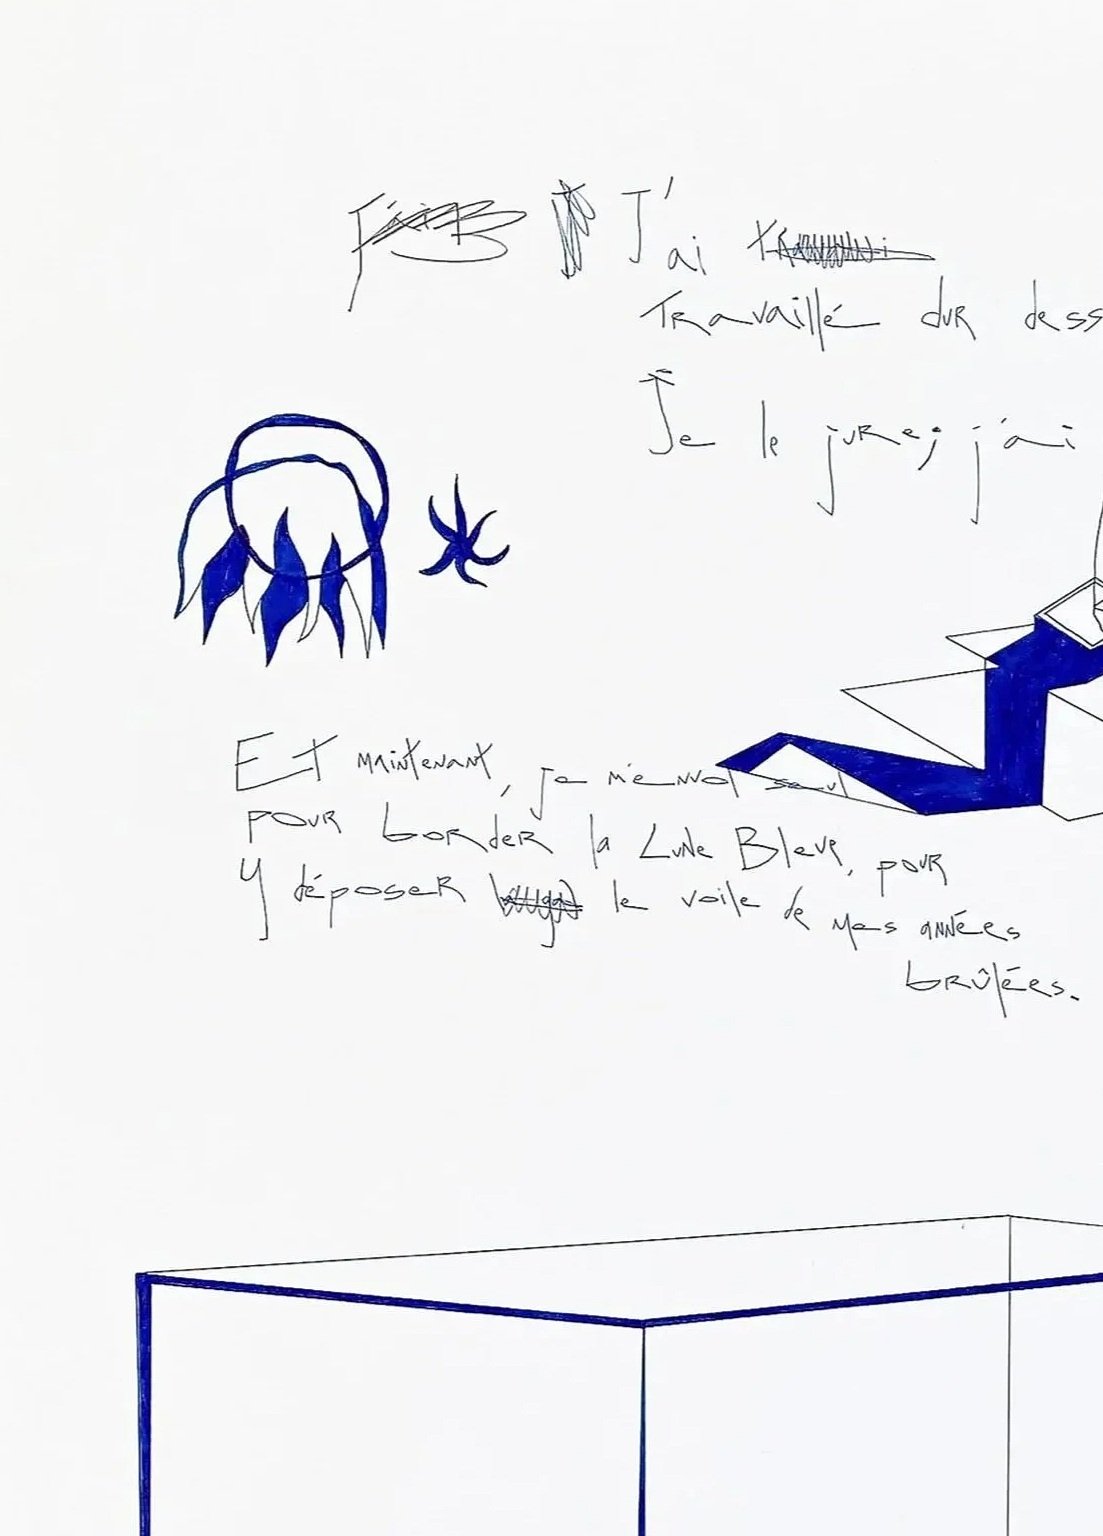 J'ai
Travaillé dur dess
Je le jure, j'ai
Et maintenant, je m'envol seul
pour border la Lune Bleue, pour
y déposer le voile de mes années
brûlées.